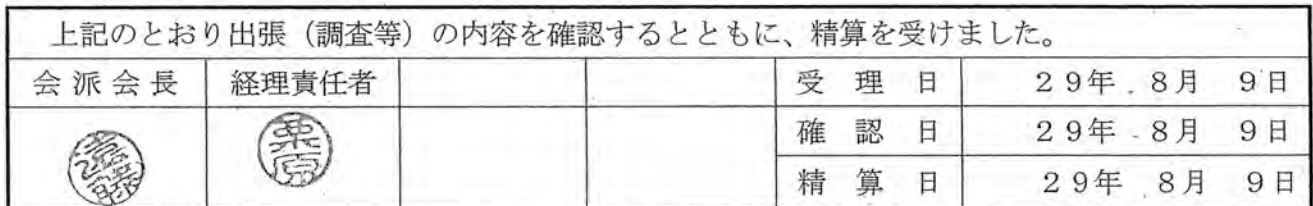 上記のとおり出張（調査等）の内容を確認するとともに、精算を受けました。
会派会長 経理責任者 受理日 29年 8月 9日
遠藤 栗原 確認日 29年 8月 9日
精算日 29年 8月 9日